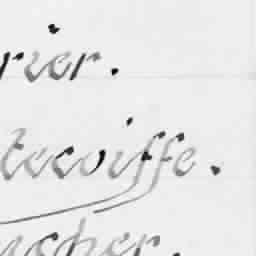 rier.
tecoiffe.
ucher.